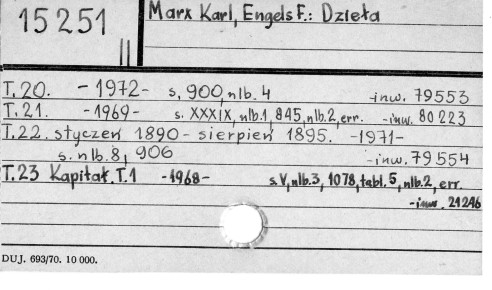 15251
II
Marx Karl, Engels F.: Dzieła
T.20. - 1972- s. 900, nlb. 4 -inw. 79553
T.21. -1969- s. XXXIX, nlb.1, 845, nlb.2, err. -inw. 80223
T.22. styczeń 1890- sierpień 1895. -1971-
s. nlb.8, 906 -inw. 79554
T.23 Kapitał. T.1 -1968- s.V, nlb.3, 1078, tabl.5, nlb.2, err.
-inw. 21246
DUJ. 693/70. 10 000.